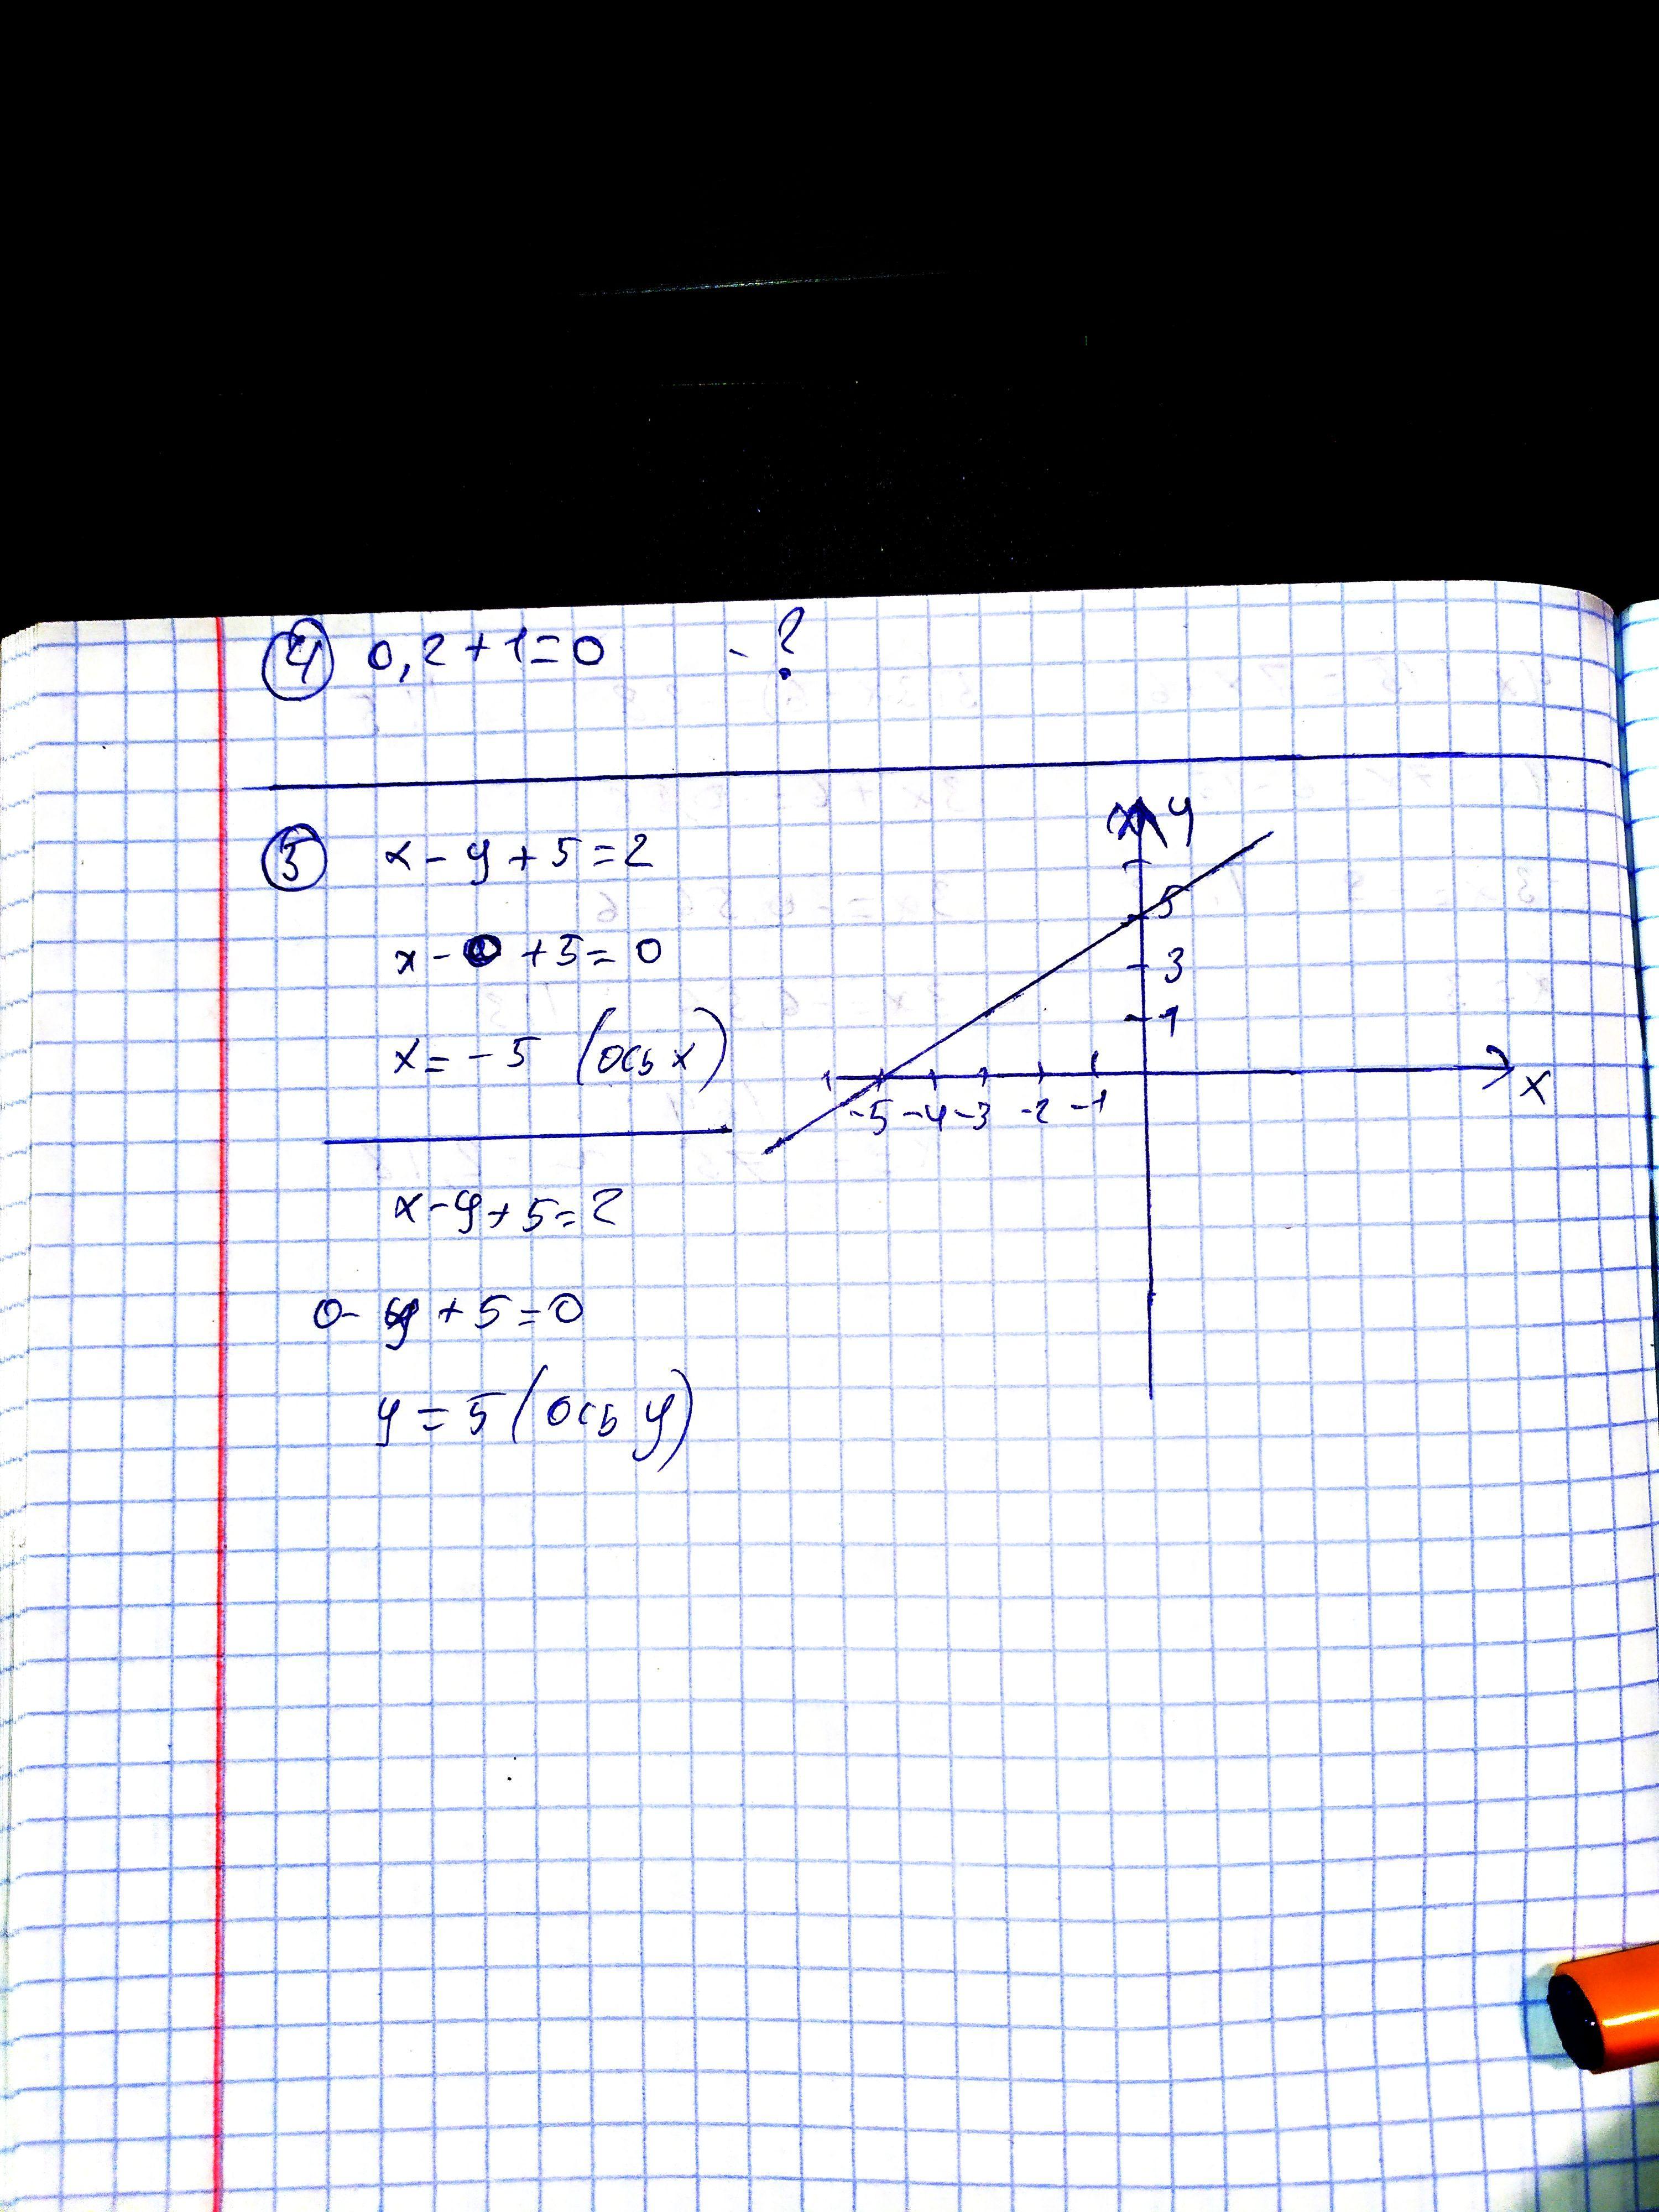 ④ 0,2+1=0 - ?
⑤ x-y+5=2
x-0+5=0
x=-5 (ось x)
x-y+5=2
0-y+5=0
y=5 (ось y)
y
5
3
1
x
-5 -4 -3 -2 -1